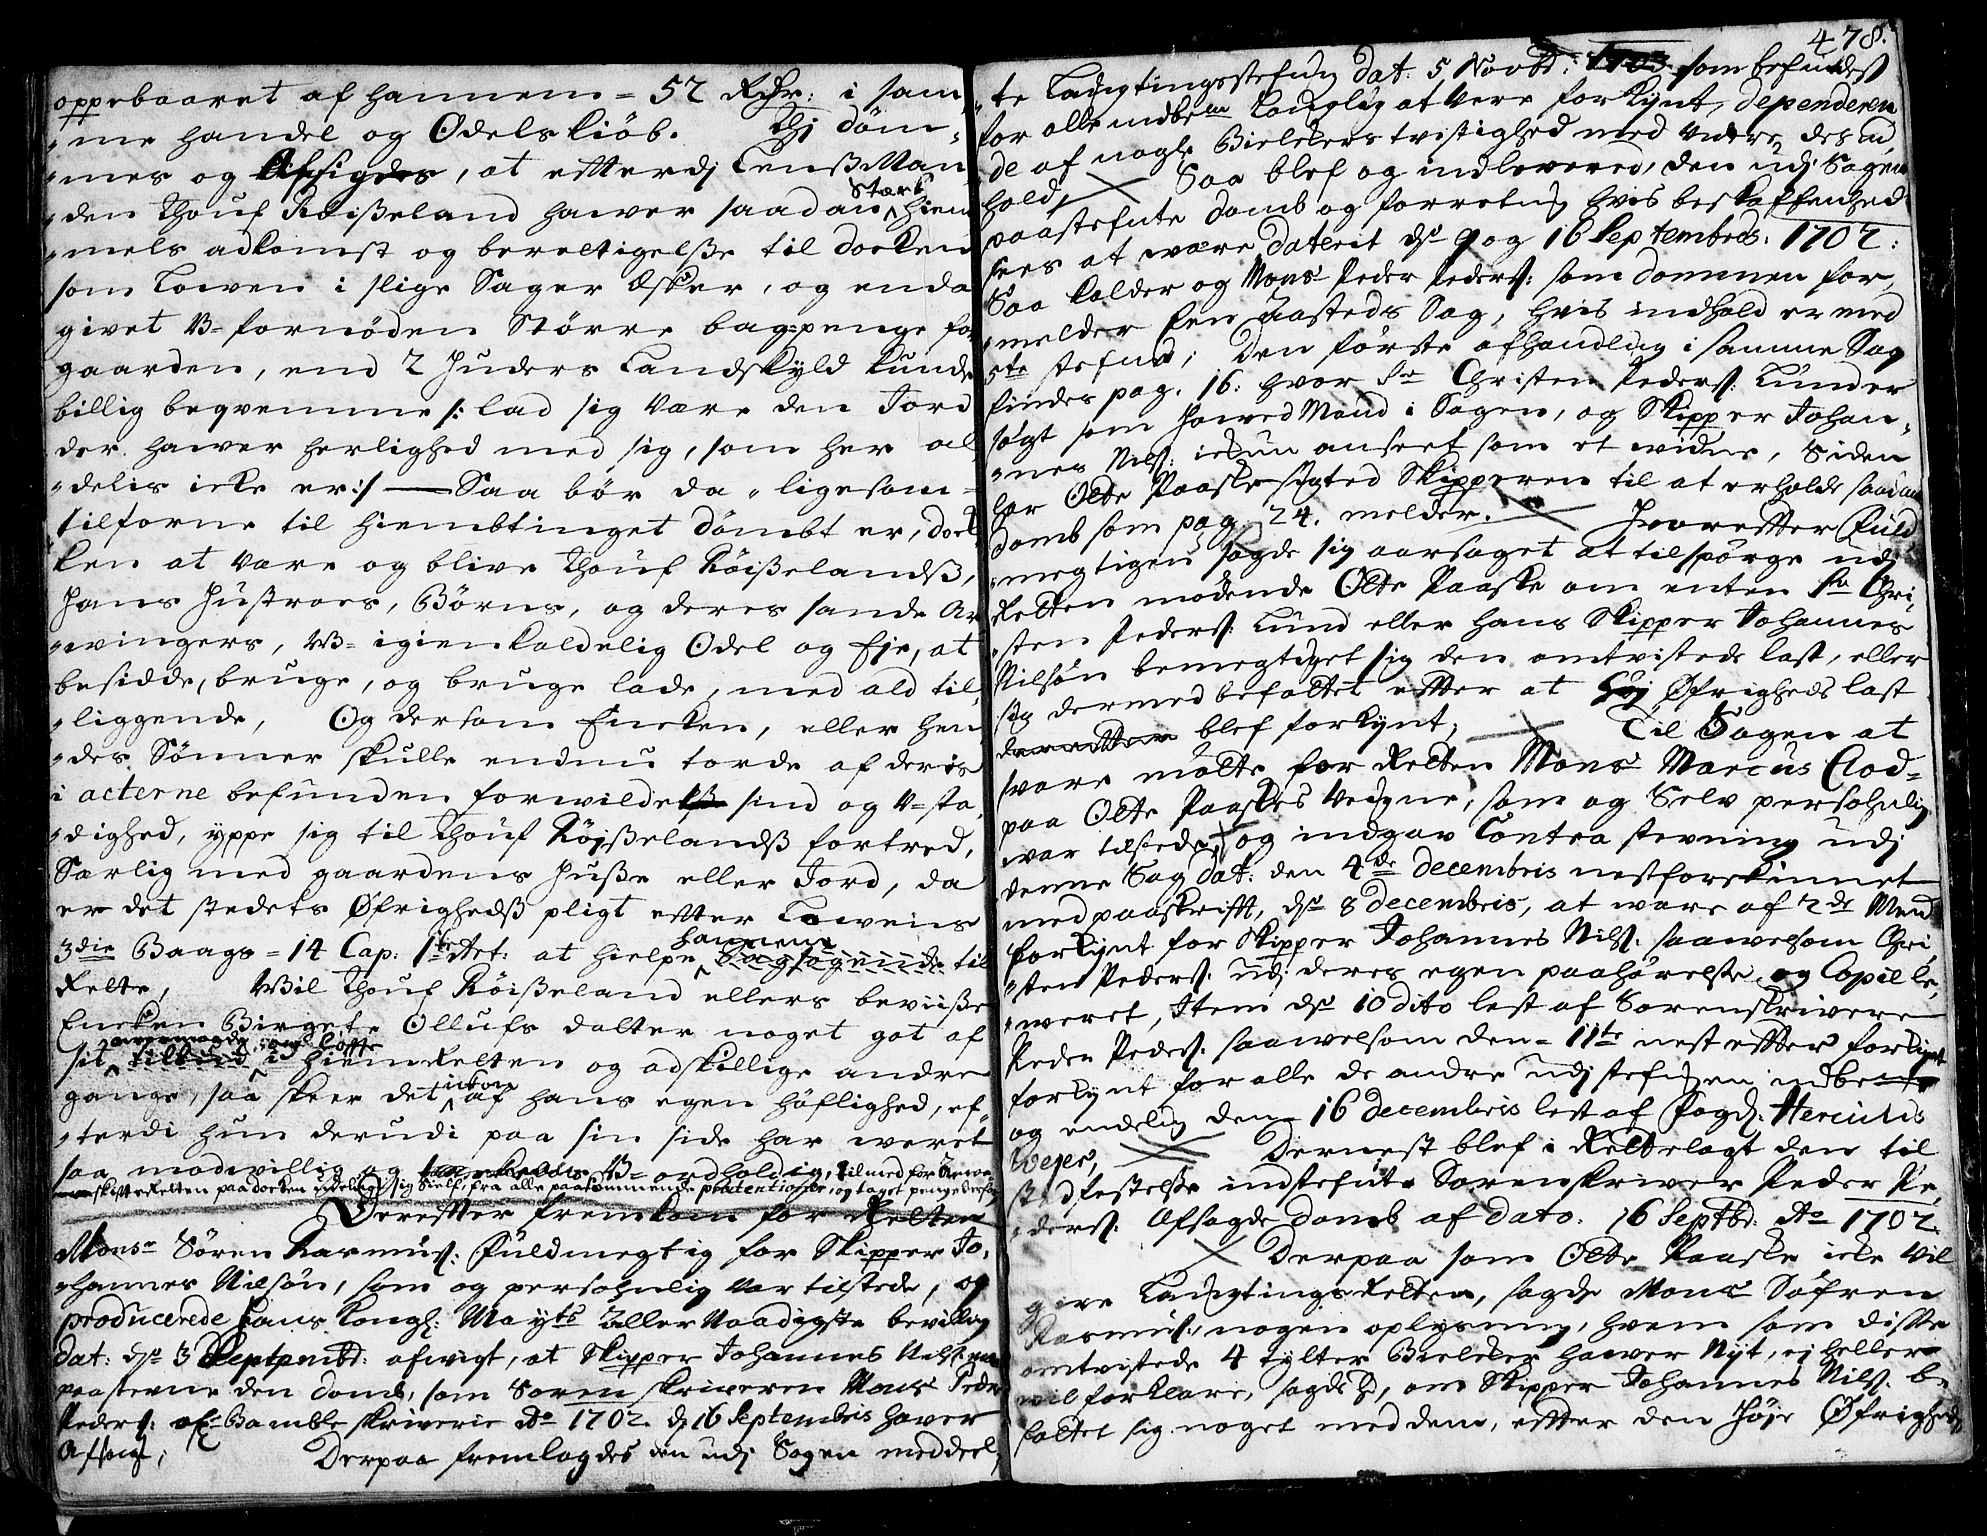 oppebaaret af hannem = 52 Rdr: i sam„
„me handel og Ødelskiöb. Thj döm„
„mes og Afsigdes, at efterdj LensMan„
„den Thouf Röißeland hawer saadan Stærk hiem„
„mels adkomst og berettigelße til döcken
som Lowen i slige Sager Esker, og enda
givet U=fornöden Större bagpenge for
gaarden, end 2 Huders Landskyld kunde
billig beqvemme /: lad sig være den Jord
der hawer herlighed med sig, som her al„
„delis icke er :/ — Saa bör da, ligesom
tilforne til Hiembtinget dömbt er, döc„
ken at være og blive Thouf Röißelandß,
Hans Hustroes, Börns, og deres sande Ar„
„wingers, U=igienkaldelig Odel og Eje, at
besidde, bruge, og bruge lade, med ald til„
„liggende, Og dersom Encken, eller hen„
„des Sönner skulle endnu torde af deris
i acterne befunden forwilde sind og U=sta„
„dighed, yppe sig til Thouf Röjßelandß fortred,
Særlig med gaardens Huße eller Jord, da
er det stedets Øfrighedß pligt efter Lowens
3die Baags = 14 Cap: 1te Art: at hielpe hannem til
Rette, Wil Thouf Röißeland ellers beviiße
Encken Birgete Ollufs datter noget got af
sit i HiemRetten og adskillige andre
gange, saa skeer det ickon af hans egen höflighed, ef„
„terdi hun derudi paa sin side har weret
saa modwillig og U=ordholdig, tilmed for Arwe„
skifteRetten paa docken endelig sig Self fra alle paakommende prætentioner, og taget penge derfor
Derefter fremkom for Retten
Monsr Sören Rasmus: Fuldmegtig for Skipper Jo„
„hannes Nilsön, som og persohnlig var tilstede, og
producerede Hans Kongl: Mayts aller Naadigste bevilling
dat: dn 3 Septembr: afwigt, at Skipper Johannes Nilß: maa
paasteune den domb, som Sorenskriveren Monsr Peder
Peders: af Bamble skriverie Ao 1702 d 16 Septembris haver
Afsagt; Derpaa fremlagdes den udj Sagen meddeel„
478.
„te Laugtingsstefning dat: 5 Novbr: 1703 som befindes
for alle indbem Lauglig at vere forkynt, dependeren„
de af nogle Bielckers tvistighed med videre des ind„
hold, Saa blef og indlevered, den udj Sagen
paastefnte domb og forretning hvis beskaffenhed
sees at wære daterit dn 9 og 16 Septembris: 1702:
Saa kalder og Monsr Peder Peders: som dommen for„
„melder Een Aasteds Sag, hvis indhold er med
5te stefned; den förste afhandling i samme Sag
findes pag. 16: hvor Sr Christen Peders: Lunder
sögt som HowedMand i Sagen, og Skipper Johan„
„nes Nilß: ickun anseet som et widne, Siden
lar Olte Paaske sigted Skipperen til at erholde saadan
domb som pag. 24. melder. Hvorefter Fuld„
„megtigen sagde sig aarsaget at tilspörge udj
Retten mödende Olte Paaske om enten Sr Chri„
„sten Peders: Lund eller hans Skipper Johannes
Nilsön bemegtiget sig den omtvistede last, eller
sig dermed befattet efter at Øfrigheds last
blef forkynt; Til Sagen at
svare mötte for Retten Monsr Marcus Clod=
paa Olte Paaskes Vegne, som og Selv persohnlig
war tilstede, og indgav Contra stevning udj
denne Sag dat: den 4de decembris nestforskinnet
med paaskrifft, dn 8 decembris, at ware af 2de Mend
forkynt for Skipper Johannes Nilß: saawelsom Chri„
„sten Peders: udj deres egen paahörelse og Copie le„
„weret, Item dn 10 dito lest af Sorenskrivere
Peder Peders: saawelsom den = 11te nest efter forkynt
forkynt for alle de andre udj stefningen indbe
og endelig den 16 decembris lest af Fogd: Herculis
Weyer, Dernest blef i Rette lagt den til
stadfestelse indstefnte Sorenskriver Peder Pe„
„ders: Afsagde domb af dato. 16 Septbr: Ao 1702
Derpaa som Olte Paaske icke vil
give LaugtingsRetten, sagde Monsr Söfren
Rasmus:, nogen oplysning, hvem som disse
omtvistede 4 tylter Bielcker hawer Nyt, ej heller
wil forklare, sagde hand, om Skipper Johannes Nilß: be„
fattet sig noget med dem, efter den Höje Øfrigheds